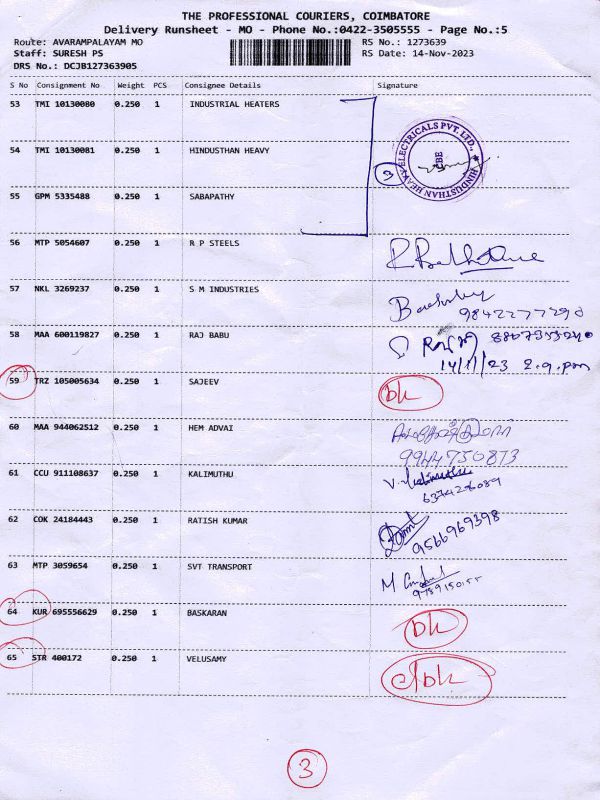 THE PROFESSIONAL COURIERS, COIMBATORE
Delivery Runsheet - MO - Phone No.:0422-3505555 - Page No.:5
Route: AVARAMPALAYAM MO RS No.: 1273639
Staff: SURESH PS RS Date: 14-Nov-2023
DRS No.: DCJB127363905
S No Consignment No Weight PCS Consignee Details Signature
53 TMI 10130080 0.250 1 INDUSTRIAL HEATERS
54 TMI 10130081 0.250 1 HINDUSTHAN HEAVY
HINDUSTHAN HEAVY ELECTRICALS PVT. LTD.,
CBE
3
55 GPM 5335488 0.250 1 SABAPATHY
56 MTP 5054607 0.250 1 R P STEELS
57 NKL 3269237 0.250 1 S M INDUSTRIES
9842277290
58 MAA 600119827 0.250 1 RAJ BABU
14/11/23 2.9.pm
59 TRZ 105005634 0.250 1 SAJEEV
60 MAA 944062512 0.250 1 HEM ADVAI
9944750873
61 CCU 911108637 0.250 1 KALIMUTHU
6374296089
62 COK 24184443 0.250 1 RATISH KUMAR
9566969398
63 MTP 3059654 0.250 1 SVT TRANSPORT
64 KUR 695556629 0.250 1 BASKARAN
65 STR 400172 0.250 1 VELUSAMY
3